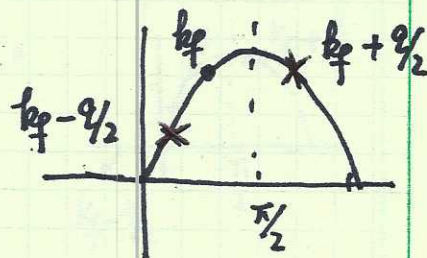 k_F
k_F + q/2
k_F - q/2
π/2